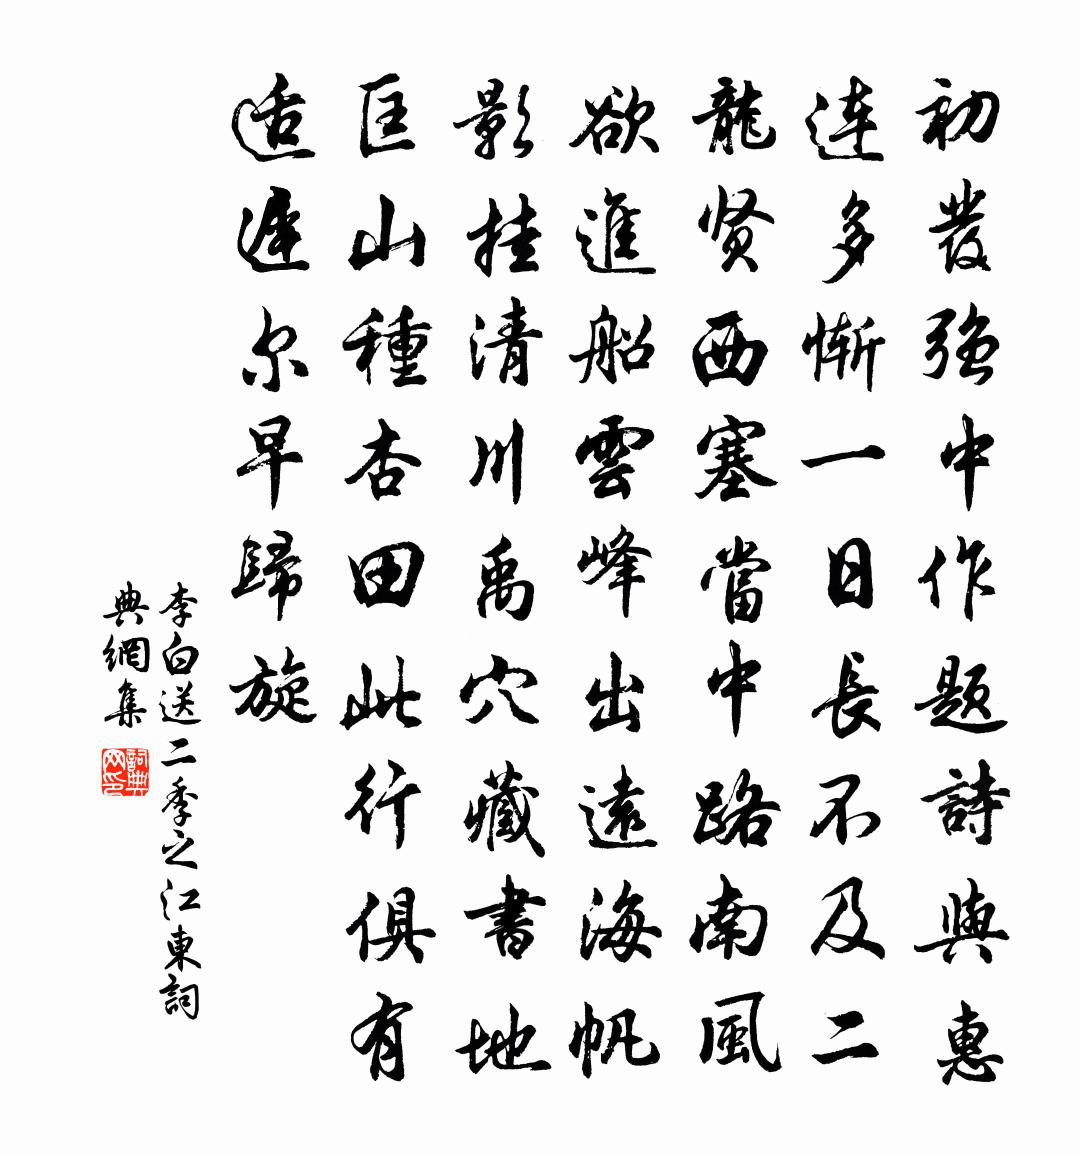 初發強中作題詩與惠
連多慚一日長不及二
龍贤西塞當中路南風
欲進船雲峰出遠海帆
影挂清川禹穴藏書地
匡山種杏田此行俱有
适遲尔早歸旋
李白送二季之江東詞
典網集
詞典网印